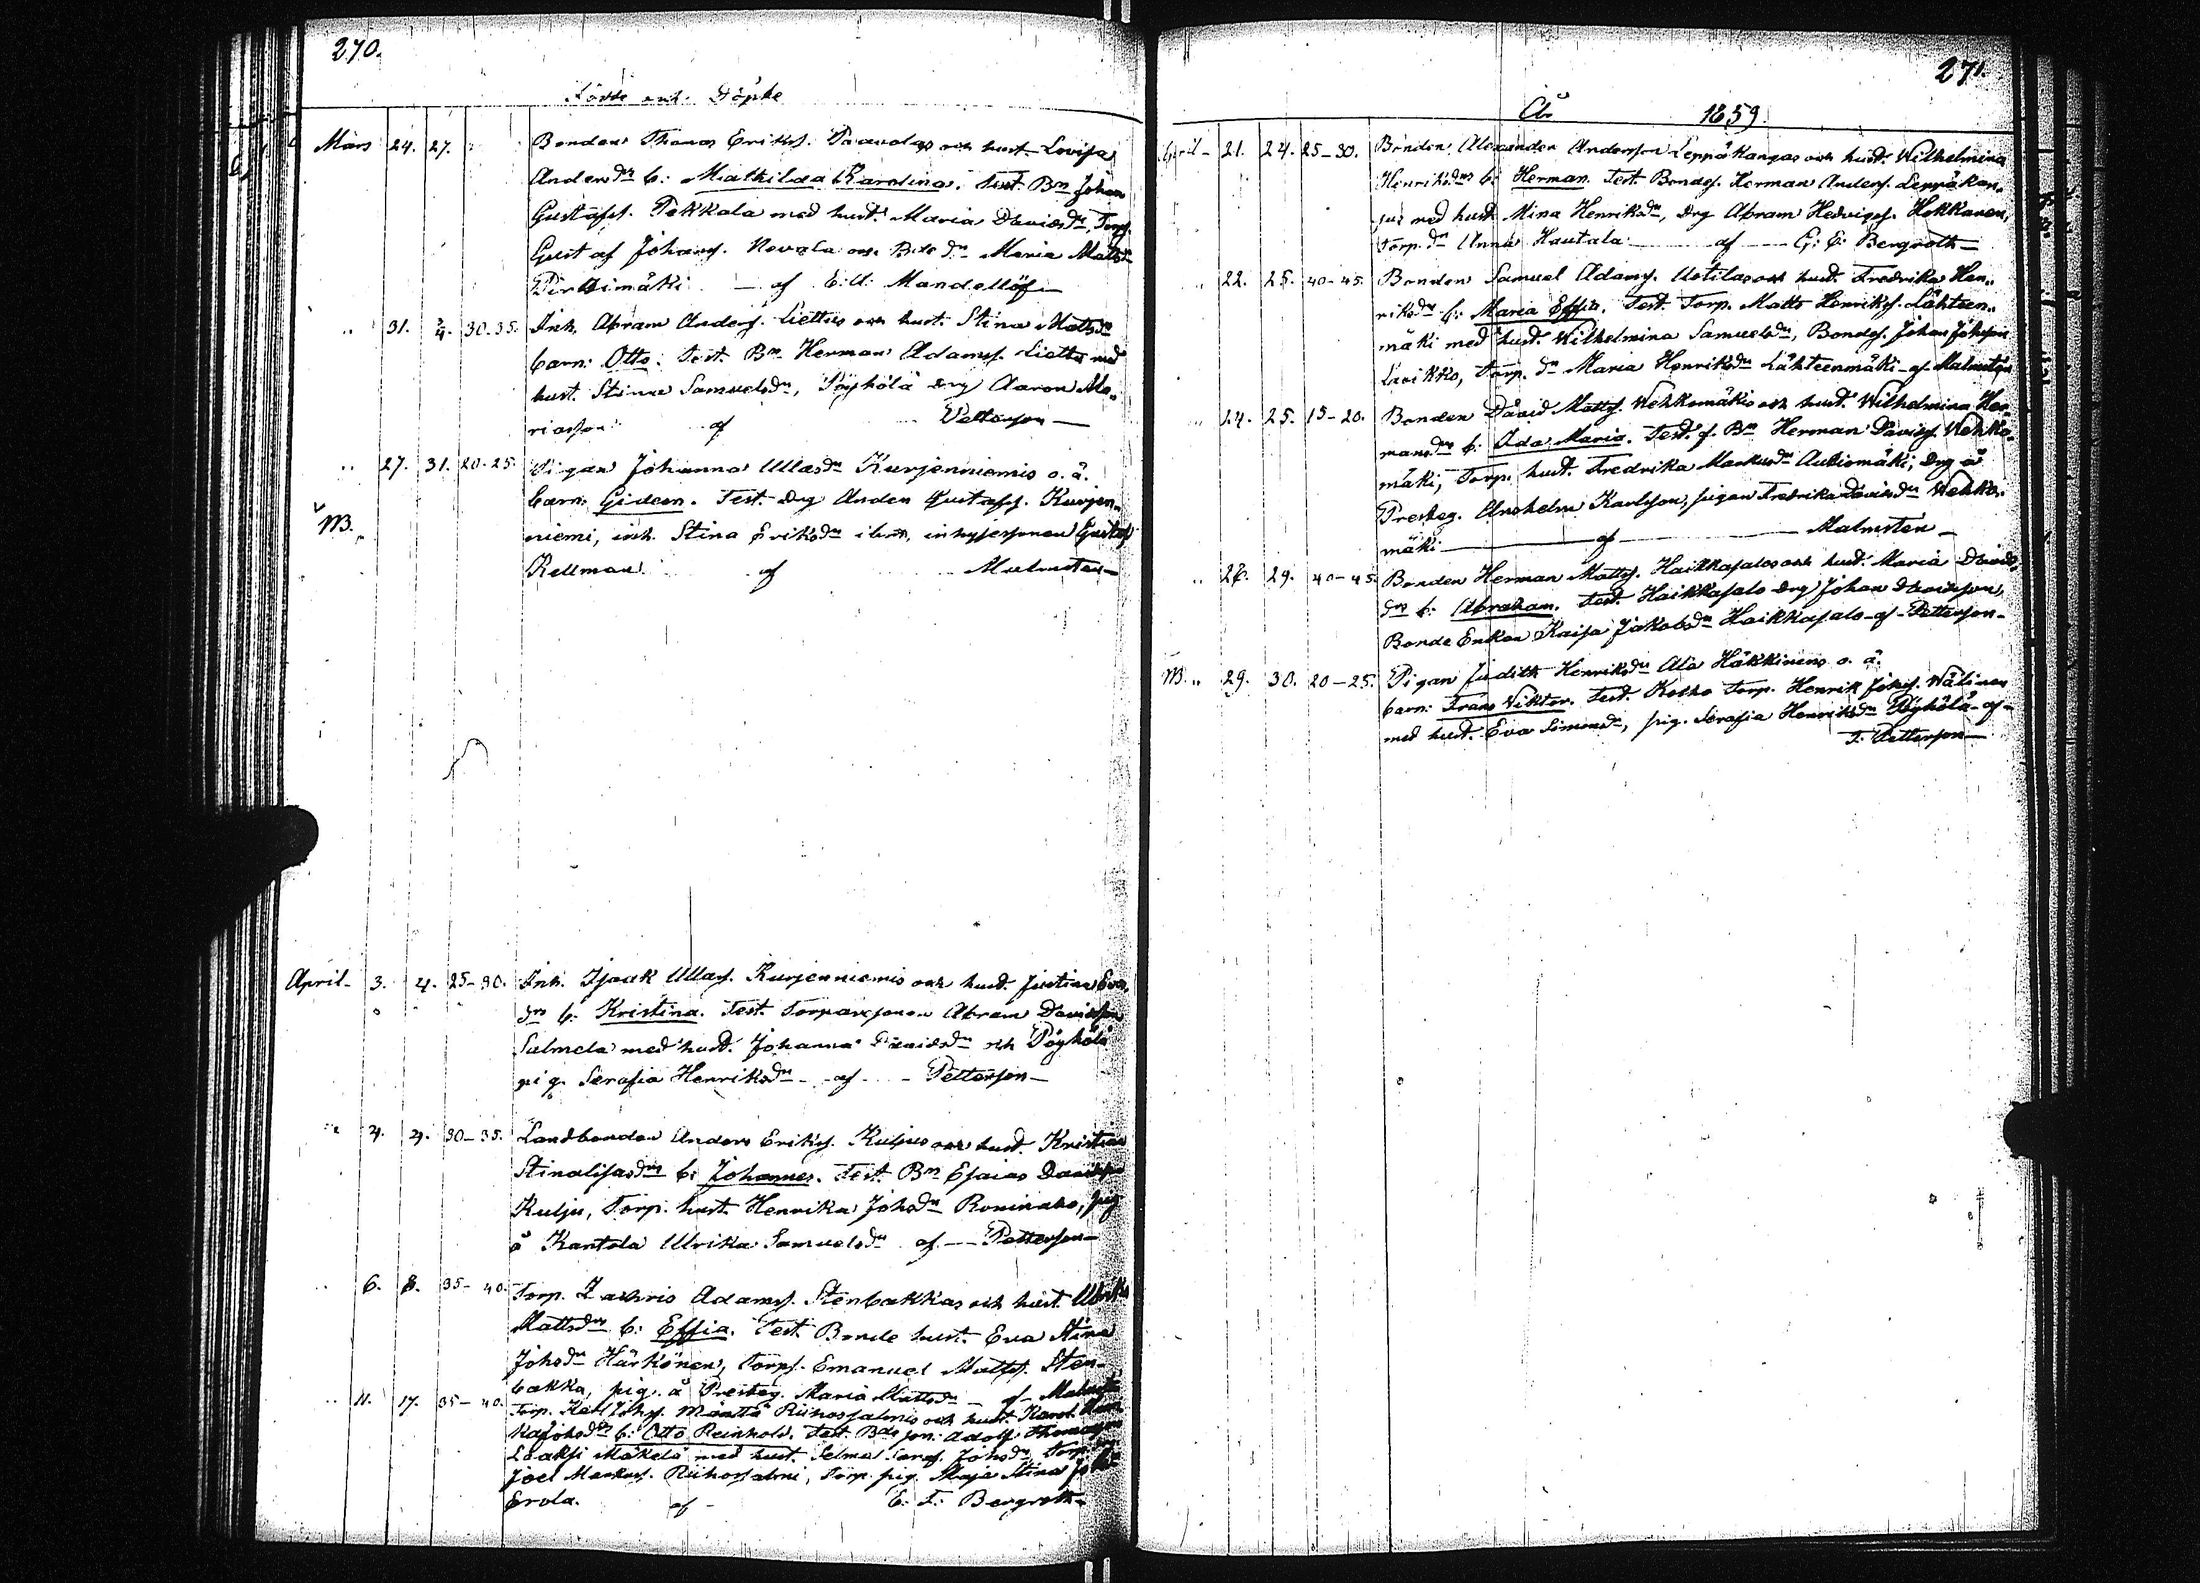 270.
Födde och Döpte
Mars 24. 27. Bonden Thomas Eriks. Paavolas och hust. Lovisa
Andersdrs b: Mathilda Karolina. Test. Bn Johan
Gustafss. Tekkala med hust. Maria Davidsdr, Torp.
Gustaf Johans. Novala och Bde dr Maria Mattsdr
Pirttimäki — af E: U: Mandellöf —
" 31. 4. 30-35. Inh. Abram Anders. Liettus och hust. Stina Mattsdrs
barn: Otto. Test. Bn Herman Adamss. Lietto med
hust. Stina Samuelsdr, Pöyhölä drg Aaron Ma„
riasson af Petterson —
" 27. 31. 20-25. Pigan Johanna Ullasdr Kurjenniemis o. ä.
barn: Gideon. Test. drg Anders Gustafss. Kurjen„
niemi, inh. Stina Eriksdr ibm, inhysesonen Gustaf
M.
Rellman. af Malmsten —
April - 3. 4. 25-30. Inh. Isaak Ullass. Kurjenniemis och hust. Justina Eva„
drs b: Kristina. Test. Torparesonen Abram Davidsson
Salmela med hust. Johanna Davidsdr och Pöyhölä
pig. Serafia Henriksdr — af — Petterson —
" 4. 4. 30-35. Landbonden Anders Eriks. Kuljus och hust. Kristina
Stinalisasdrs b: Johannes. Test. Bn Esaias Davidsson
Kulju, Torp. hust. Henrika Johsdr Roninaho, pig
å Kantola Ulrika Samuelsdr af — Petterson —
" 6. 8. 35-40. Torp. Zachris Adamss. Stenbakkas och hust. Ulrika
Mattsdrs b: Effia. Test. Bonde hust. Eva Stina
Johsdr Härkönen, Torps. Emanuel Matss. Sten„
bakka, pig. å Presteg. Maria Mattsdr — af Malmsten
" 11. 17. 35-40. Torp. Karl Johs. Määttä Riihosalmis och hust. Karol. Hen„
ka Johsdrs b: Otto Reinhold. Test. Bde son Adolf Thomasson
Laaksi Mäkelä med hust. Selma Saraf. Johsdr Torp.
Joel Markuss. Riihosalmi, Torp. pig. Maja Stina Johsdr
Erola. af — E: F: Bergroth —
271.
År 1859.
April - 21. 24. 25-30. Bonden Alexander Andersson Leppäkangas och hust. Wilhelmina
Henriksdrs b: Herman. Test. Bondes. Herman Anders. Leppäkan„
gas med hust. Mina Henriksdr, drg Abram Hedvigss. Hokkanen,
Torp. dr Anna Hautala — af — E: F: Bergroth —
" 22. 25. 40-45. Bonden Samuel Adams. Uotilas och hust. Fredrika Hen„
riksdrs b: Maria Effia. Test. Torp. Matts Henrikss. Lähteen„
mäki med hust. Wilhelmina Samuelsdr, Bondes. Johan Johsson
Lavikko, Torp. dr Maria Henriksdr Lähteenmäki - af - Malmsten
" 24. 25. 15-20. Bonden David Mattss. Wehkomäkis och hust. Wilhelmina Her„
mansdrs b: Ida Maria. Test. f. Bn Herman Davids. Wehko„
mäki, Torp. hust. Fredrika Markusdr Autiomäki, drg å
Presteg. Anshelm Karlsson, pigan Fredrika Davidsdr Wehko„
mäki — af — Malmsten —
" 26. 29. 40-45. Bonden Herman Mattss. Haikkasalos och hust. Maria Davids„
drs b: Abraham. Test. Haikkasalo drg Johan Davidsson,
Bonde Enkan Kaisa Jakobsdr Haikkasalo - af - Petterson -
M. " 29. 30. 20-25. Pigan Judith Henriksdr Ala Häkkinens o. ä.
barn: Frans Viktor. Test. Kosko Torp. Henrik Johs. Wälinen
med hust. Eva Simonsdr, pig. Serafia Henriksdr Pöyhölä - af -
F. Petterson —